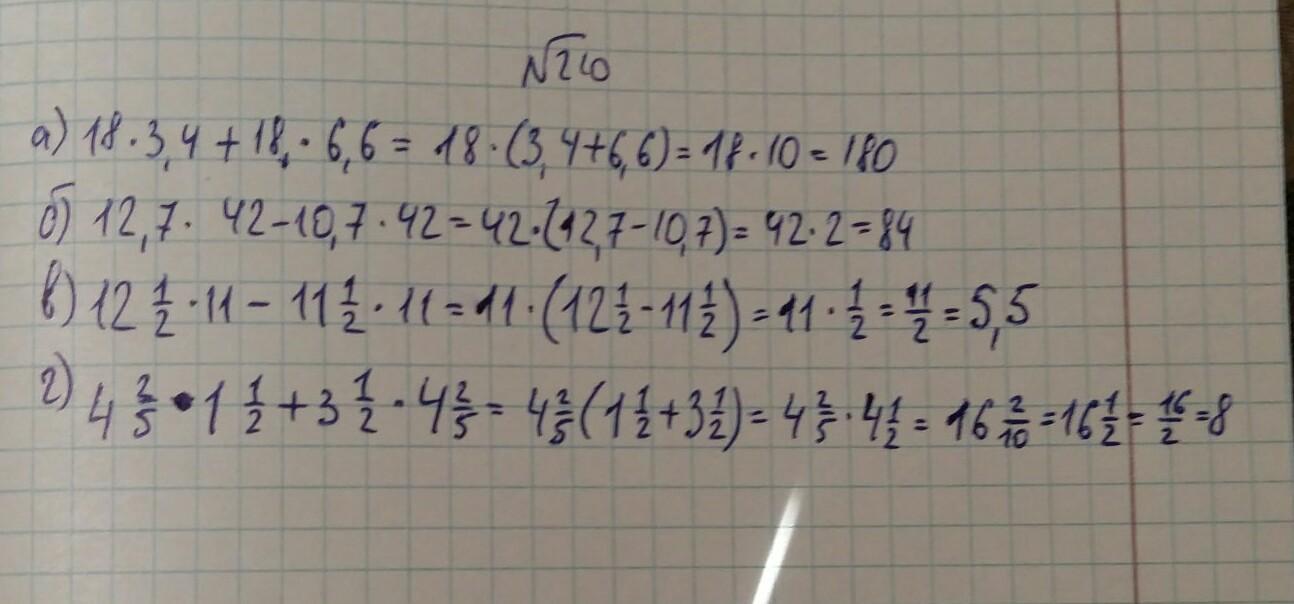 №240
а) 18·3,4+18,·6,6=18·(3,4+6,6)=18·10=180
б) 12,7·42-10,7·42=42·(12,7-10,7)=42·2=84
в) 12 1/2·11-11 1/2·11=11·(12 1/2-11 1/2)=11·1/2=11/2=5,5
г) 4 2/5·1 1/2+3 1/2·4 2/5=4 2/5(1 1/2+3 1/2)=4 2/5·4 1/2=16 2/10=16 1/2=16/2=8